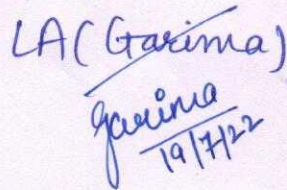 LA(Garima)
Garima
19/7/22